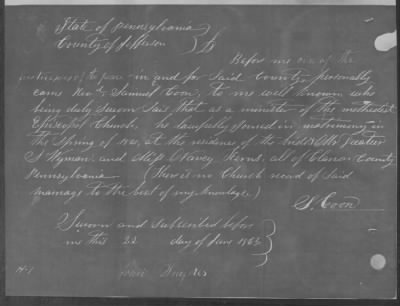 State of Pennsylvania
County of Jefferson } ss
Before me one of the
Justices of the peace in and for said County, personally
came Revd Samuel Coon, to me well known, who
being duly Sworn Says that as a minister of the methodist
Episcopal Church, he lawfully joined in matrimony in
the Spring of at the residence of the brides
S Wyman and Miss Nancy Kerns, all of County
Pennsylvania (there is no Church record of Said
marriage to the best of my knowledge)
S. Coon
Sworn and subscribed before
me this 22 day of June 1863